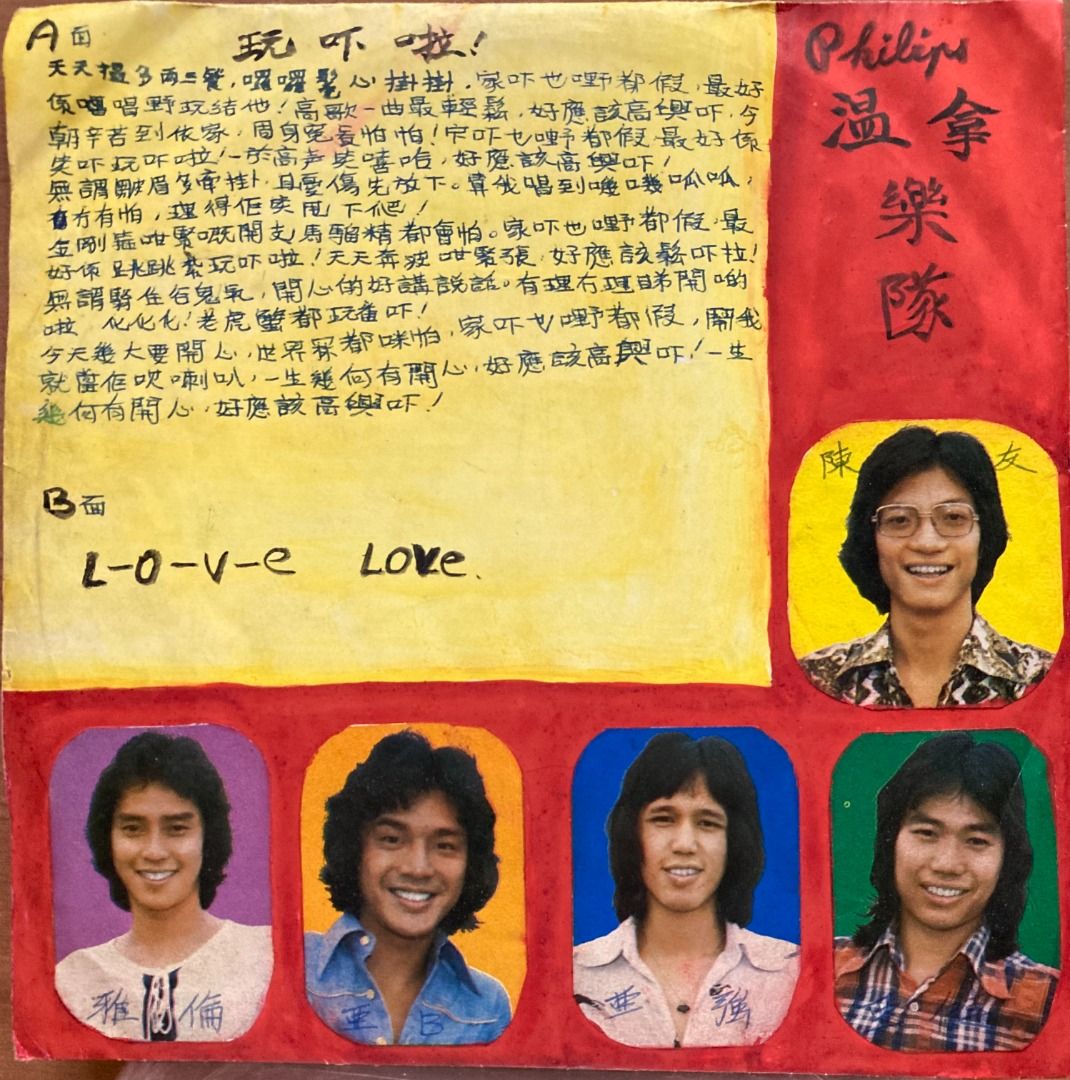 A面
玩吓啦!
天天搵多兩三餐,囉囉髧心掛掛,家吓也嘢都假,最好
係唱唱野玩結他!高歌一曲最輕鬆,好應該高興吓,今
朝辛苦到依家,周身冤看怕怕!家吓也嘢都假最好係
笑吓玩吓啦!一於高声笑嘻哈,好應該高興吓!
無謂皺眉多牽掛,且憂傷先放下。算我唱到嘰嘰呱呱,
有冇有怕,理得佢笑甩下爬!
金剛箍咁緊嘅開支馬騮精都會怕。家吓也嘢都假,最
好係跳跳紥玩吓啦!天天奔波咁緊張,好應該鬆吓拉!
無謂谷住谷鬼氣,開心的好講說話。有理冇理睇開啲
啦 化化化!老虎蟹都玩番吓!
今天幾大要開心,世界冧都咪怕,家吓也嘢都假,鬧我
就當佢吹喇叭,一生幾何有開心,好應該高興吓!一生
幾何有開心,好應該高興吓!
B面
L-O-V-e Love.
Philips
溫拿
樂
隊
陳 友
雅倫
亞B
亞強